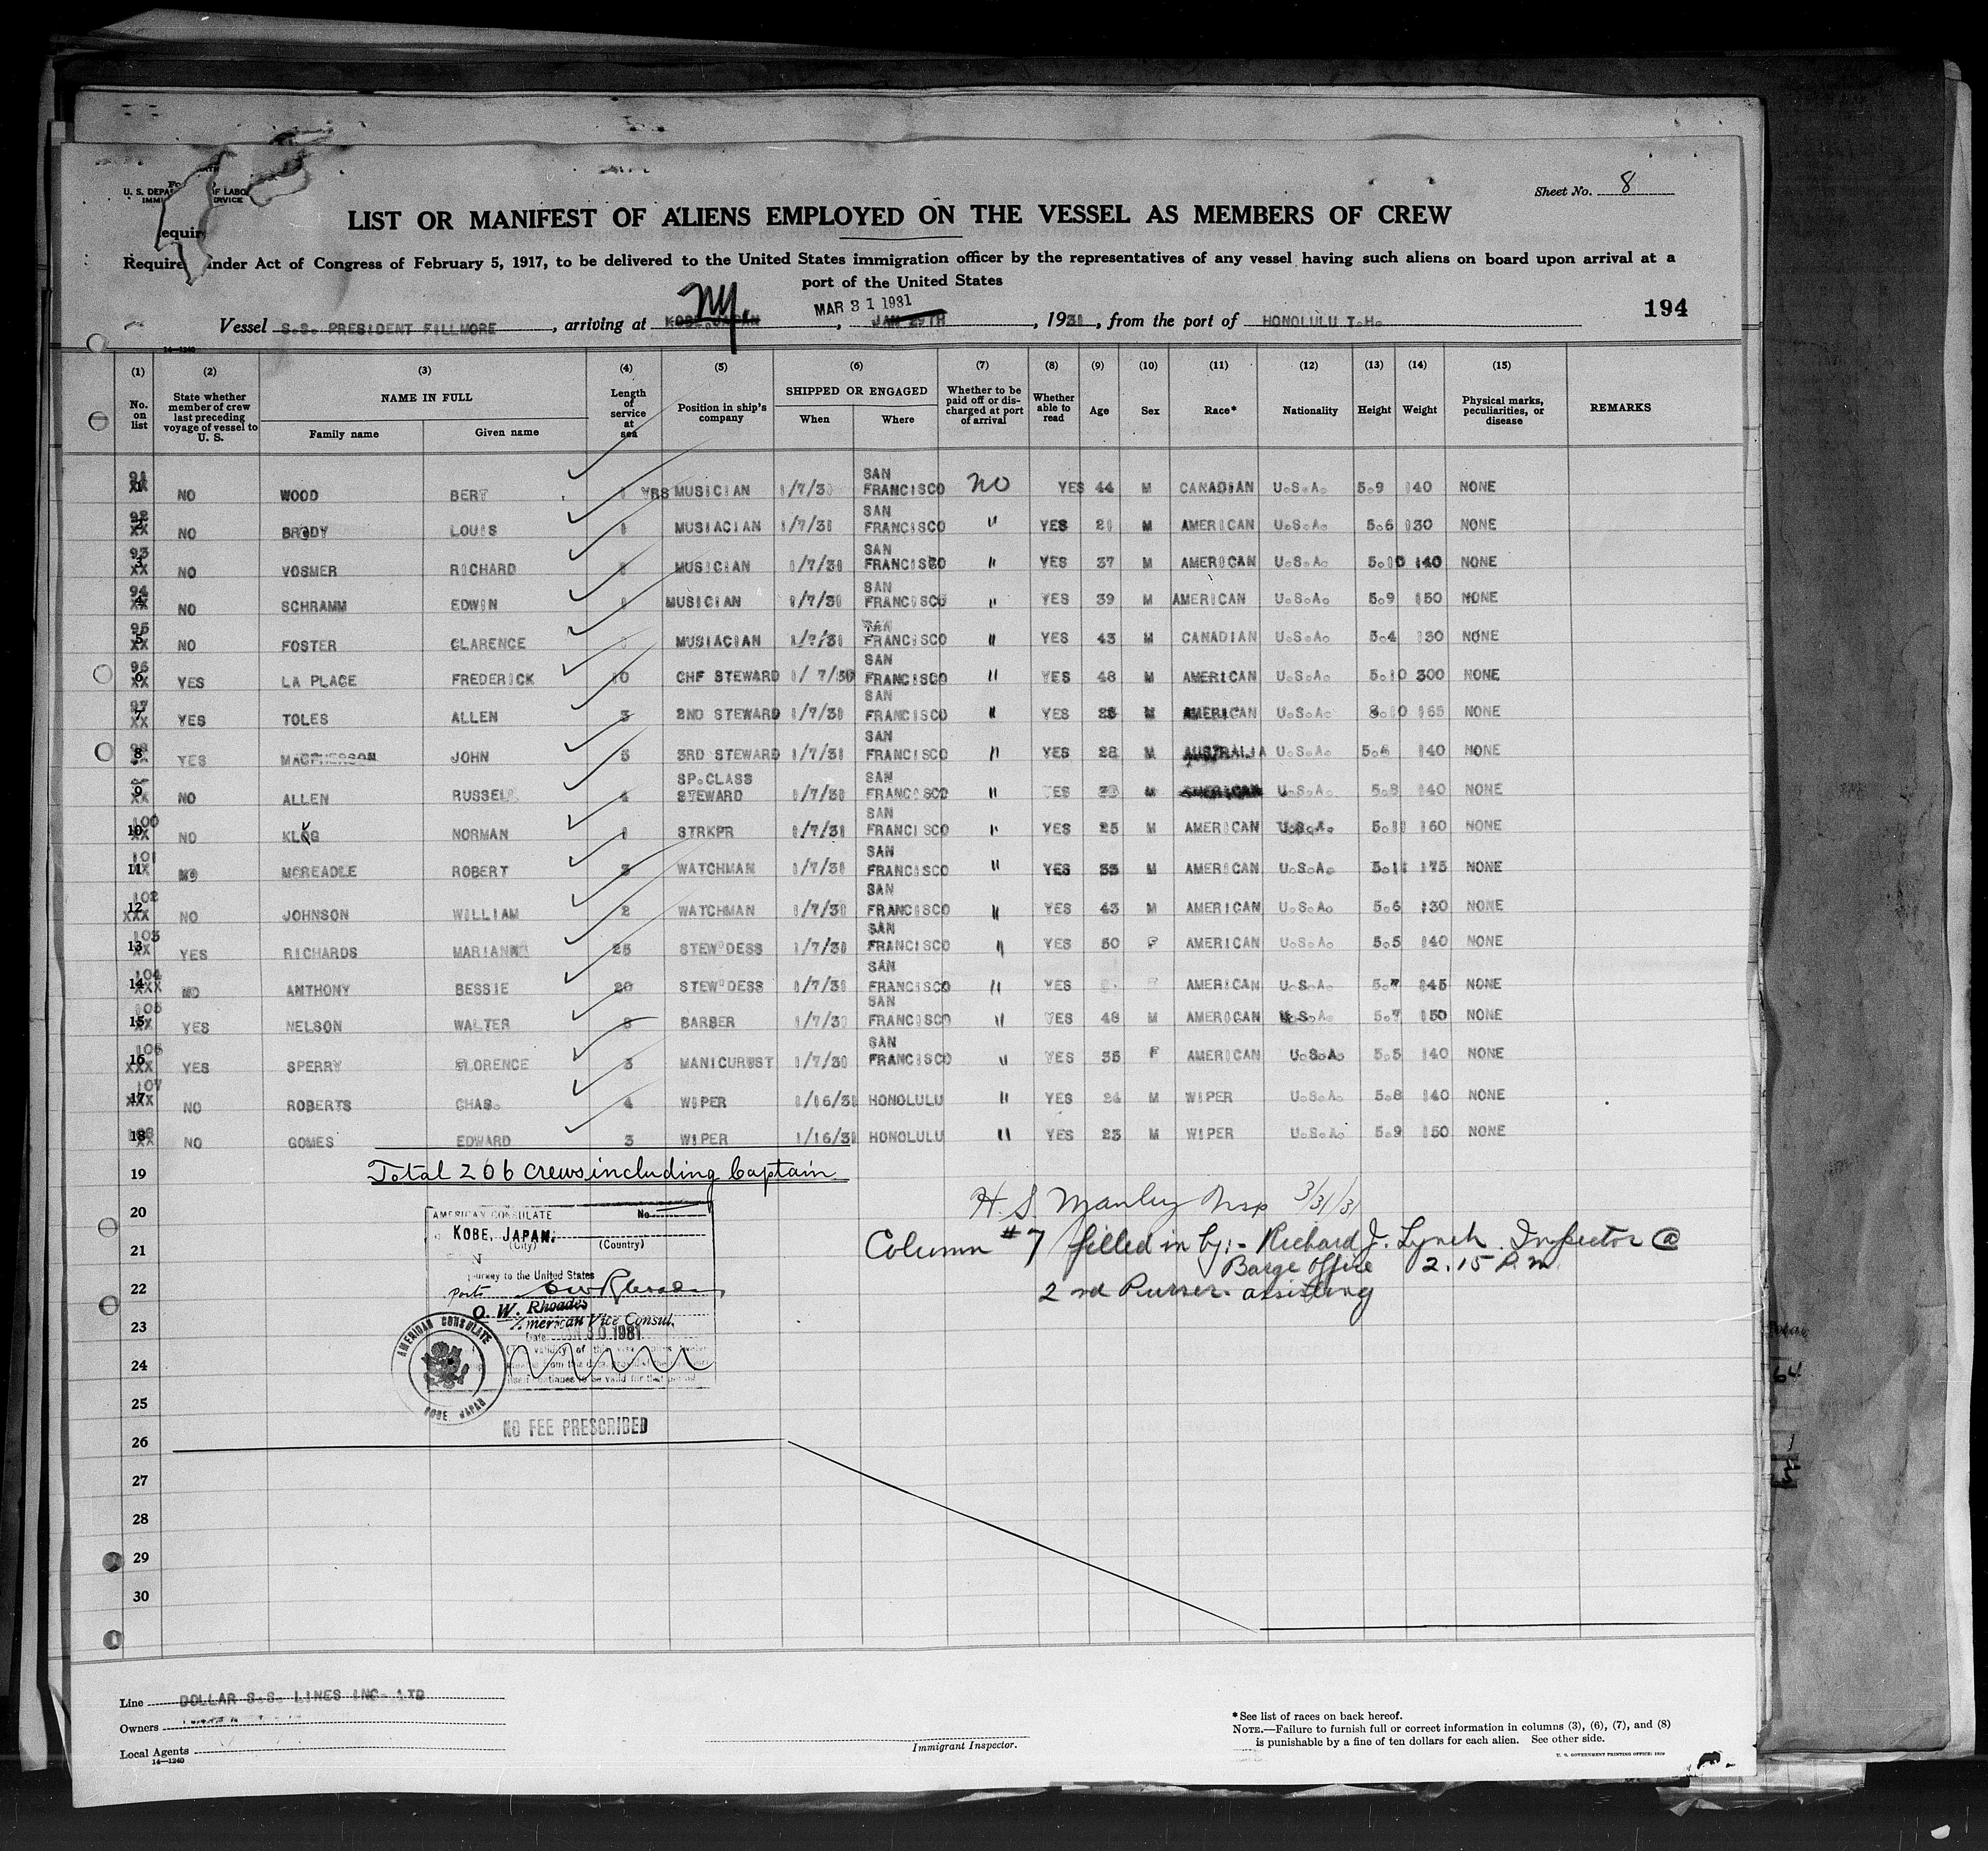 U. S. DEPA OF LABO
IMMI ERVICE
equir
Sheet No. 8
LIST OR MANIFEST OF ALIENS EMPLOYED ON THE VESSEL AS MEMBERS OF CREW
Require under Act of Congress of February 5, 1917, to be delivered to the United States immigration officer by the representatives of any vessel having such aliens on board upon arrival at a
port of the United States
194
NY.
MAR 31 1931
Vessel S.S. PRESIDENT FILLMORE, arriving at KOBE.JAPAN, JAN 29TH, 1931, from the port of HONOLULU T.H.
14—1240
(1) (2) (3) (4) (5) (6) (7) (8) (9) (10) (11) (12) (13) (14) (15)
No. on list
State whether member of crew last preceding voyage of vessel to U. S.
NAME IN FULL
Family name Given name
Length of service at sea
Position in ship's company
SHIPPED OR ENGAGED
When Where
Whether to be paid off or discharged at port of arrival
Whether able to read
Age Sex Race* Nationality Height Weight
Physical marks, peculiarities, or disease
REMARKS
91 1 NO WOOD BERT 1 YRS MUSICIAN 1/7/31 SAN FRANCISCO NO YES 44 M CANADIAN U.S.A. 5.9 140 NONE
92 2 NO BRODY LOUIS 1 MUSIACIAN 1/7/31 SAN FRANCISCO " YES 21 M AMERICAN U.S.A. 5.6 130 NONE
93 3 NO VOSMER RICHARD MUSICIAN 1/7/31 SAN FRANCISCO " YES 37 M AMERICAN U.S.A. 5.10 140 NONE
94 4 NO SCHRAMM EDWIN 1 MUSICIAN 1/7/31 SAN FRANCISCO " YES 39 M AMERICAN U.S.A. 5.9 150 NONE
95 5 NO FOSTER CLARENCE MUSIACIAN 1/7/31 SAN FRANCISCO " YES 43 M CANADIAN U.S.A. 5.4 130 NONE
96 6 YES LA PLACE FREDERICK 10 CHF STEWARD 1/ 7/30 SAN FRANCISCO " YES 48 M AMERICAN U.S.A. 5.10 300 NONE
97 7 YES TOLES ALLEN 3 2ND STEWARD 1/7/31 SAN FRANCISCO " YES 25 M AMERICAN U.S.A. 5.10 165 NONE
98 8 YES MACPHERSON JOHN 5 3RD STEWARD 1/7/31 SAN FRANCISCO " YES 28 M AUSTRALIA U.S.A. 5.6 140 NONE
9 NO ALLEN RUSSEL 4 SP.CLASS STEWARD 1/7/31 SAN FRANCISCO " YES M AMERICAN U.S.A. 5.8 140 NONE
100 10 NO KLUG NORMAN 1 STRKPR 1/7/31 SAN FRANCISCO " YES 25 M AMERICAN U.S.A. 5.11 160 NONE
101 11 NO MCREADLE ROBERT 3 WATCHMAN 1/7/31 SAN FRANCISCO " YES 35 M AMERICAN U.S.A. 5.11 175 NONE
102 12 NO JOHNSON WILLIAM 2 WATCHMAN 1/7/31 SAN FRANCISCO " YES 43 M AMERICAN U.S.A. 5.6 130 NONE
103 13 YES RICHARDS MARIANN 25 STEW'DESS 1/7/31 SAN FRANCISCO " YES 50 F AMERICAN U.S.A. 5.5 140 NONE
104 14 NO ANTHONY BESSIE 20 STEW'DESS 1/7/31 SAN FRANCISCO " YES F AMERICAN U.S.A. 5.7 145 NONE
105 15 YES NELSON WALTER 8 BARBER 1/7/31 SAN FRANCISCO " YES 48 M AMERICAN U.S.A. 5.7 150 NONE
106 16 YES SPERRY FLORENCE 3 MANICURIST 1/7/30 SAN FRANCISCO " YES 35 F AMERICAN U.S.A. 5.5 140 NONE
107 17 NO ROBERTS CHAS. 4 WIPER 1/16/31 HONOLULU " YES 24 M WIPER U.S.A. 5.8 140 NONE
108 18 NO GOMES EDWARD 3 WIPER 1/16/31 HONOLULU " YES 23 M WIPER U.S.A. 5.9 150 NONE
19 Total 206 crews including Captain
20
21
22
23
24
25
26
27
28
29
30
H. S. Manley Insp 3/31/31
Column #7 filled in by:- Richard J. Lynch Inspector @
Barge Office 2.15 P.m.
2nd Purser. assisting
AMERICAN CONSULATE No
KOBE, JAPAN.
(City) (Country)
journey to the United States
ports
O. W. Rhoades
American Vice Consul.
Date JAN 30 1931
AMERICAN CONSULATE
KOBE JAPAN
NO FEE PRESCRIBED
Line DOLLAR S.S. LINES INC. LTD
Owners
Local Agents
14—1240
Immigrant Inspector.
*See list of races on back hereof.
NOTE.—Failure to furnish full or correct information in columns (3), (6), (7), and (8)
is punishable by a fine of ten dollars for each alien. See other side.
U. S. GOVERNMENT PRINTING OFFICE: 1929